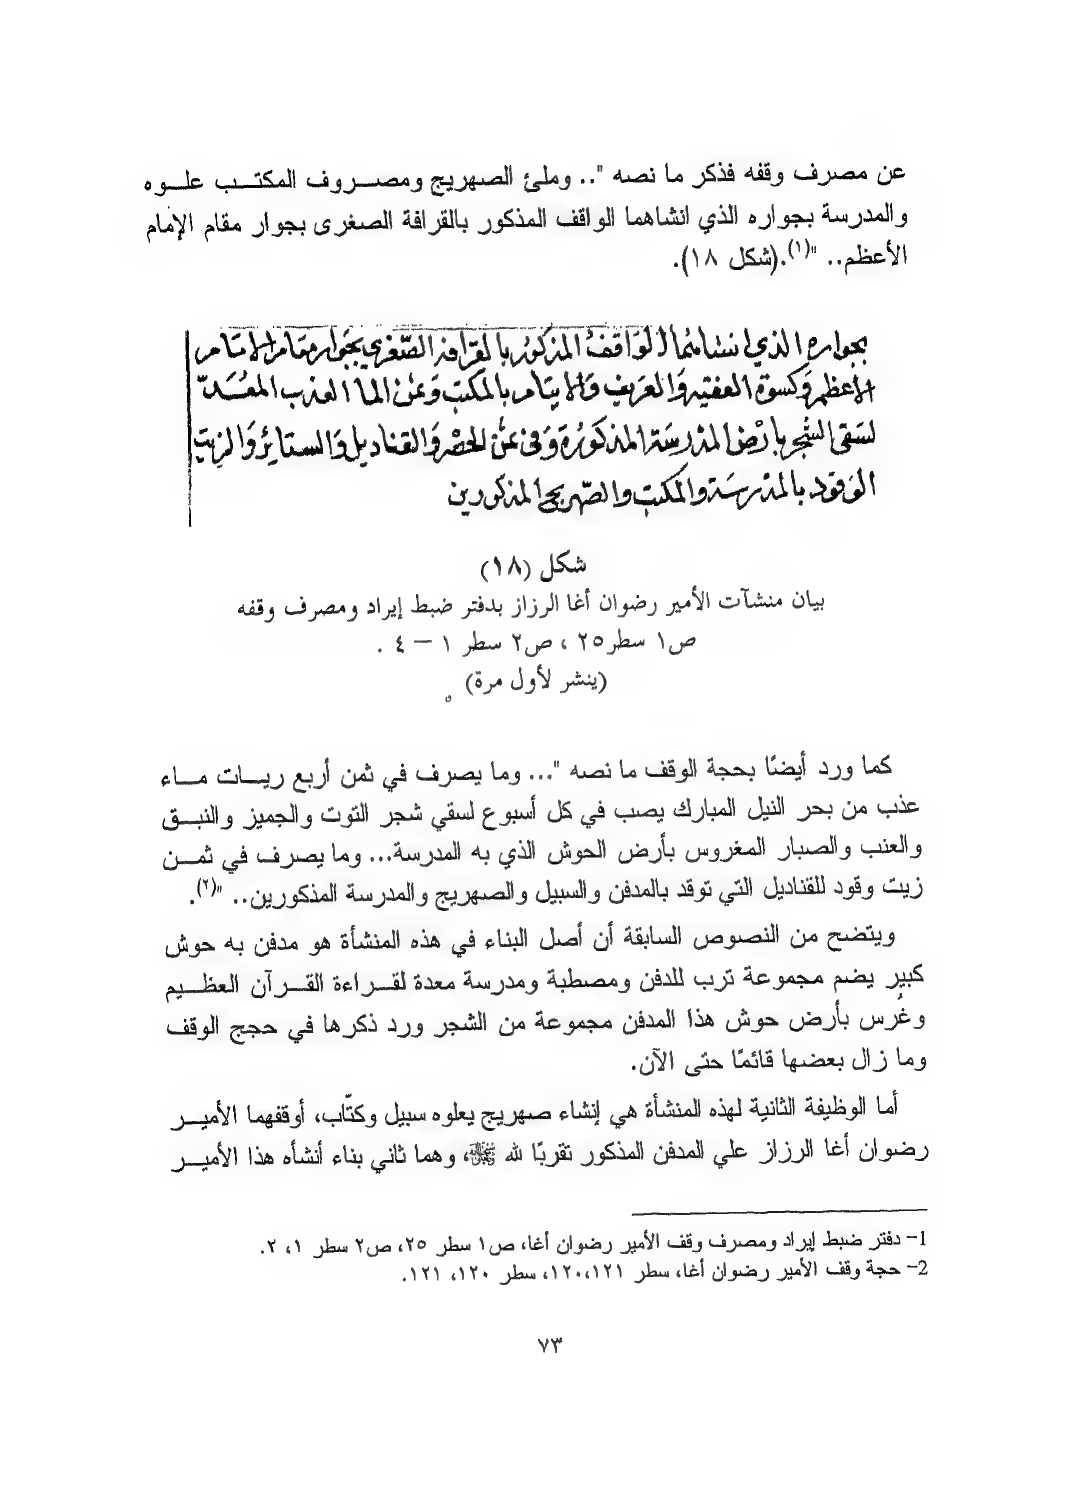 عن مصرف وقفه فذكر ما نصه ".. وملئ الصهريج ومصروف المكتب علوه
والمدرسة بجواره الذي انشاهما الواقف المذكور بالقرافة الصغرى بجوار مقام الإمام
الأعظم.. "(١).(شكل ١٨).
بجواره الذي انشاهما الواقف المذكور بالقرافة الصغري بجوار مقام الامام
الاعظم وكسوة الفقيه والعريف والايتام بالمكتب وثمن الماا العذب المعد
لسقى الشجر بارض المدرسة المذكورة وفى ثمن الحصر والقناديل والستاير والزيت
الوقود بالمدرسة والمكتب والصهريج المذكورين
شكل (١٨)
بيان منشآت الأمير رضوان أغا الرزاز بدفتر ضبط إيراد ومصرف وقفه
ص١ سطر٢٥ ، ص٢ سطر ١ – ٤ .
(ينشر لأول مرة)
كما ورد أيضًا بحجة الوقف ما نصه "... وما يصرف في ثمن أربع ريات ماء
عذب من بحر النيل المبارك يصب في كل أسبوع لسقي شجر التوت والجميز والنبق
والعنب والصبار المغروس بأرض الحوش الذي به المدرسة... وما يصرف في ثمن
زيت وقود للقناديل التي توقد بالمدفن والسبيل والصهريج والمدرسة المذكورين.. "(٢).
ويتضح من النصوص السابقة أن أصل البناء في هذه المنشأة هو مدفن به حوش
كبير يضم مجموعة ترب للدفن ومصطبة ومدرسة معدة لقراءة القرآن العظيم
وغُرس بأرض حوش هذا المدفن مجموعة من الشجر ورد ذكرها في حجج الوقف
وما زال بعضها قائمًا حتى الآن.
أما الوظيفة الثانية لهذه المنشأة هي إنشاء صهريج يعلوه سبيل وكتّاب، أوقفهما الأمير
رضوان أغا الرزاز علي المدفن المذكور تقربًا لله ﷻ، وهما ثاني بناء أنشأه هذا الأمير
1- دفتر ضبط إيراد ومصرف وقف الأمير رضوان أغا، ص١ سطر ٢٥، ص٢ سطر ١، ٢.
2- حجة وقف الأمير رضوان أغا، سطر ١٢٠،١٢١، سطر ١٢٠، ١٢١.
٧٣